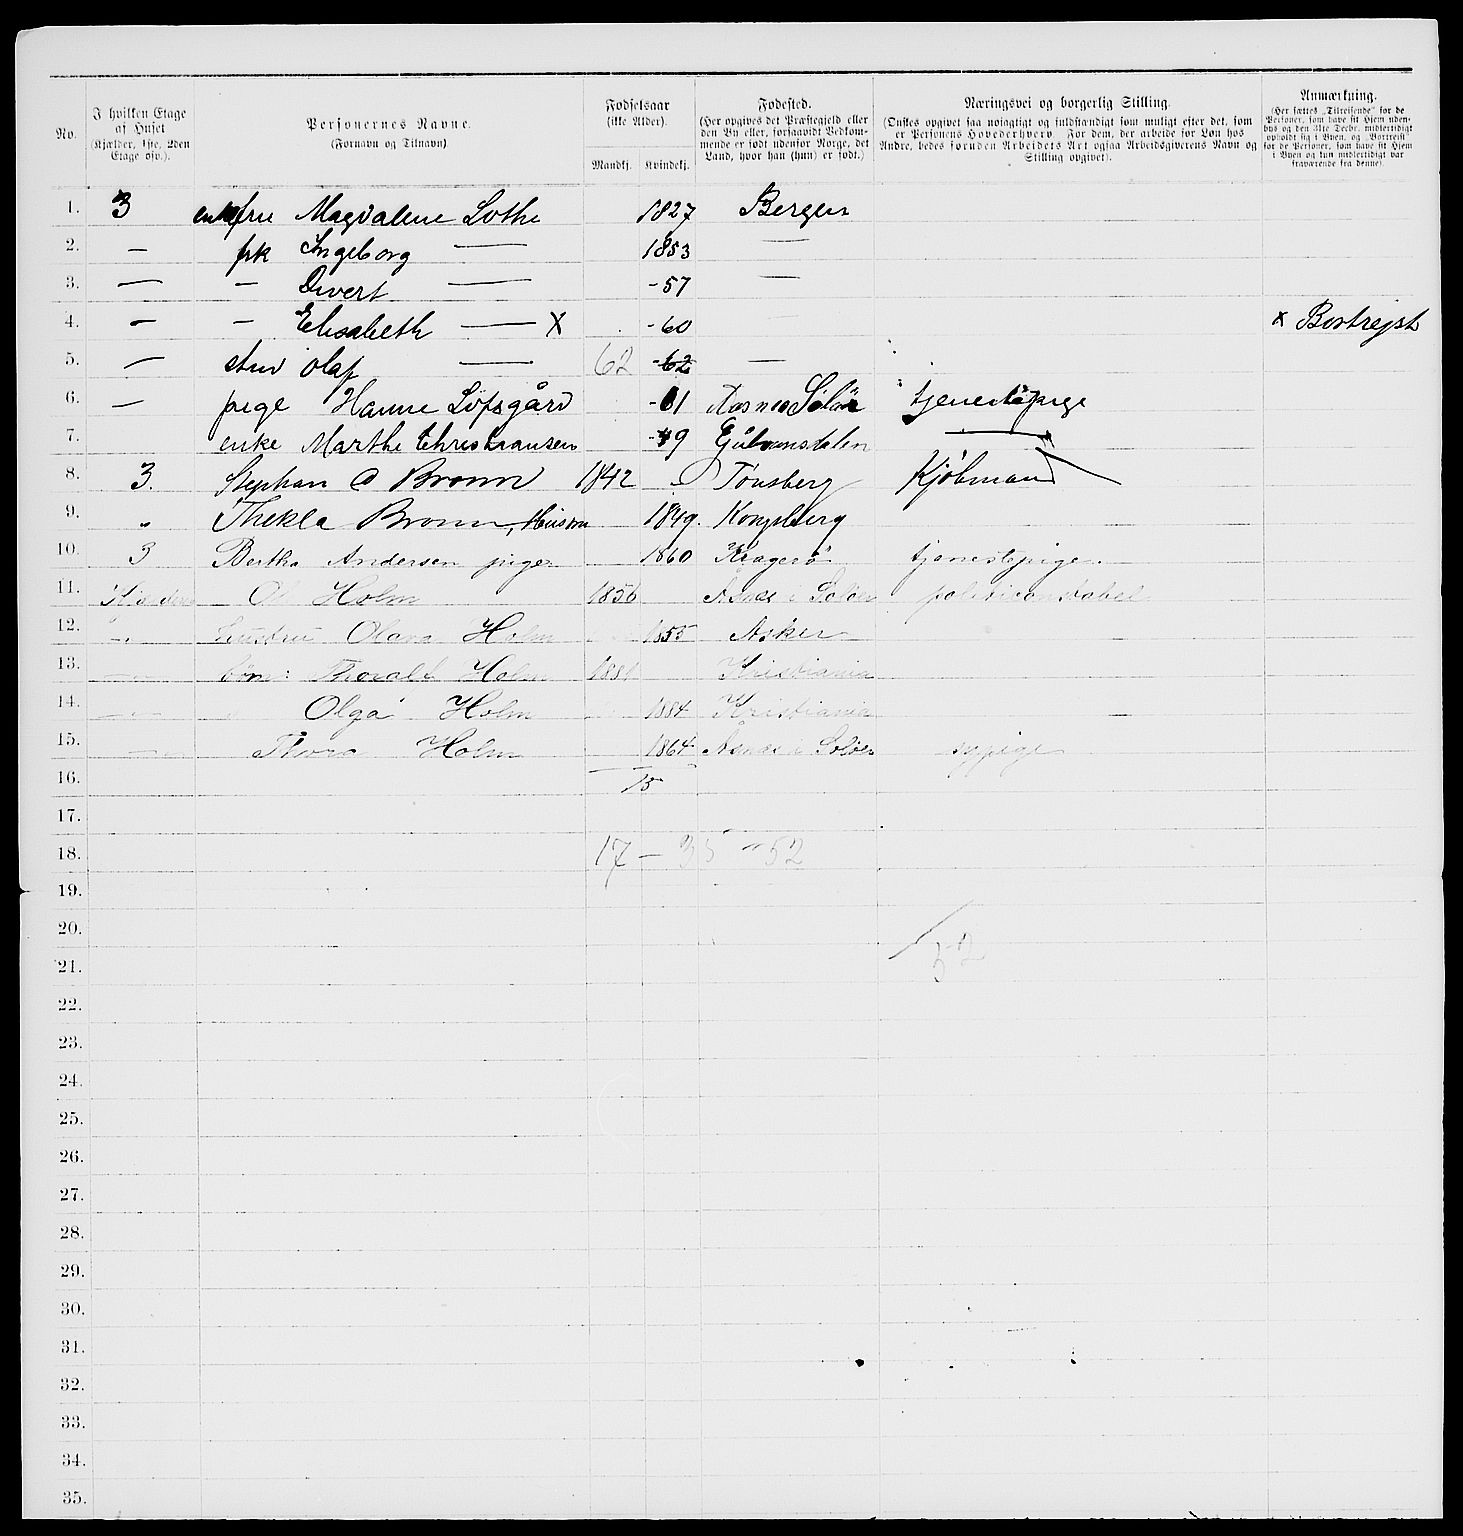 No.
I hvilken Etage af Huset (Kjælder, 1ste, 2den Etage osv.).
Personernes Navne. (Fornavn og Tilnavn).
Fødselsaar (ikke Alder). Mandkj. Kvindekj.
Fødested. (Her opgives det Præstegjeld eller den By eller, forsaavidt Vedkommende er født udenfor Norge, det Land, hvor han (hun) er født.)
Næringsvei og borgerlig Stilling. (Ønskes opgivet saa nøiagtigt og fuldstændigt som muligt efter det, som er Personens Hovederhverv. For dem, der arbeide for Løn hos Andre, bedes foruden Arbeidets Art ogsaa Arbeidsgiverens Navn og Stilling opgivet).
Anmærkning. (Her sættes „Tilreisende" for de Personer, som have sit Hjem udenbys og den 31te Decbr. midlertidigt opholdt sig i Byen, og „Bortreist" for de Personer, som have sit Hjem i Byen og kun midlertidigt var fraværende fra denne).
1. 3 enkefru Magdalene Lothe 1827 Bergen
2. — frk Ingeborg — 1853 —
3. — — — -57 —
4. — — Elisabeth — X -60 — x Bortrejst
5. — stud Olaf — 62 -62 —
6. — pige Hanne Löfsgård -61 Aasnes Solör tjenestepige
7. enke Marthe Christiansen -49 —"—
8. 3. Stephan Bronn 1842 Tönsberg Kjøbmand
9. " Thekla Bronn, 1849. Kongsberg
10. 3 Bertha Andersen pige 1860 Kragerö tjenestepige.
11. Holm 1856 Åsnes i Soløer politiconstabel
12. —"— Hustru Olava Holm 1855 Asker
13. —"— börn: Thorald Holm 1881 Kristiania
14. —"— Olga Holm 1884 Kristiania —
15. —"— Thora Holm 1864 Åsnes i Soløer sypige
16. 15
17.
18. 17 — 35 " 52
19.
20.
52
21.
22.
23.
24.
25.
26.
27.
28.
29.
30.
31.
32.
33.
34.
35.